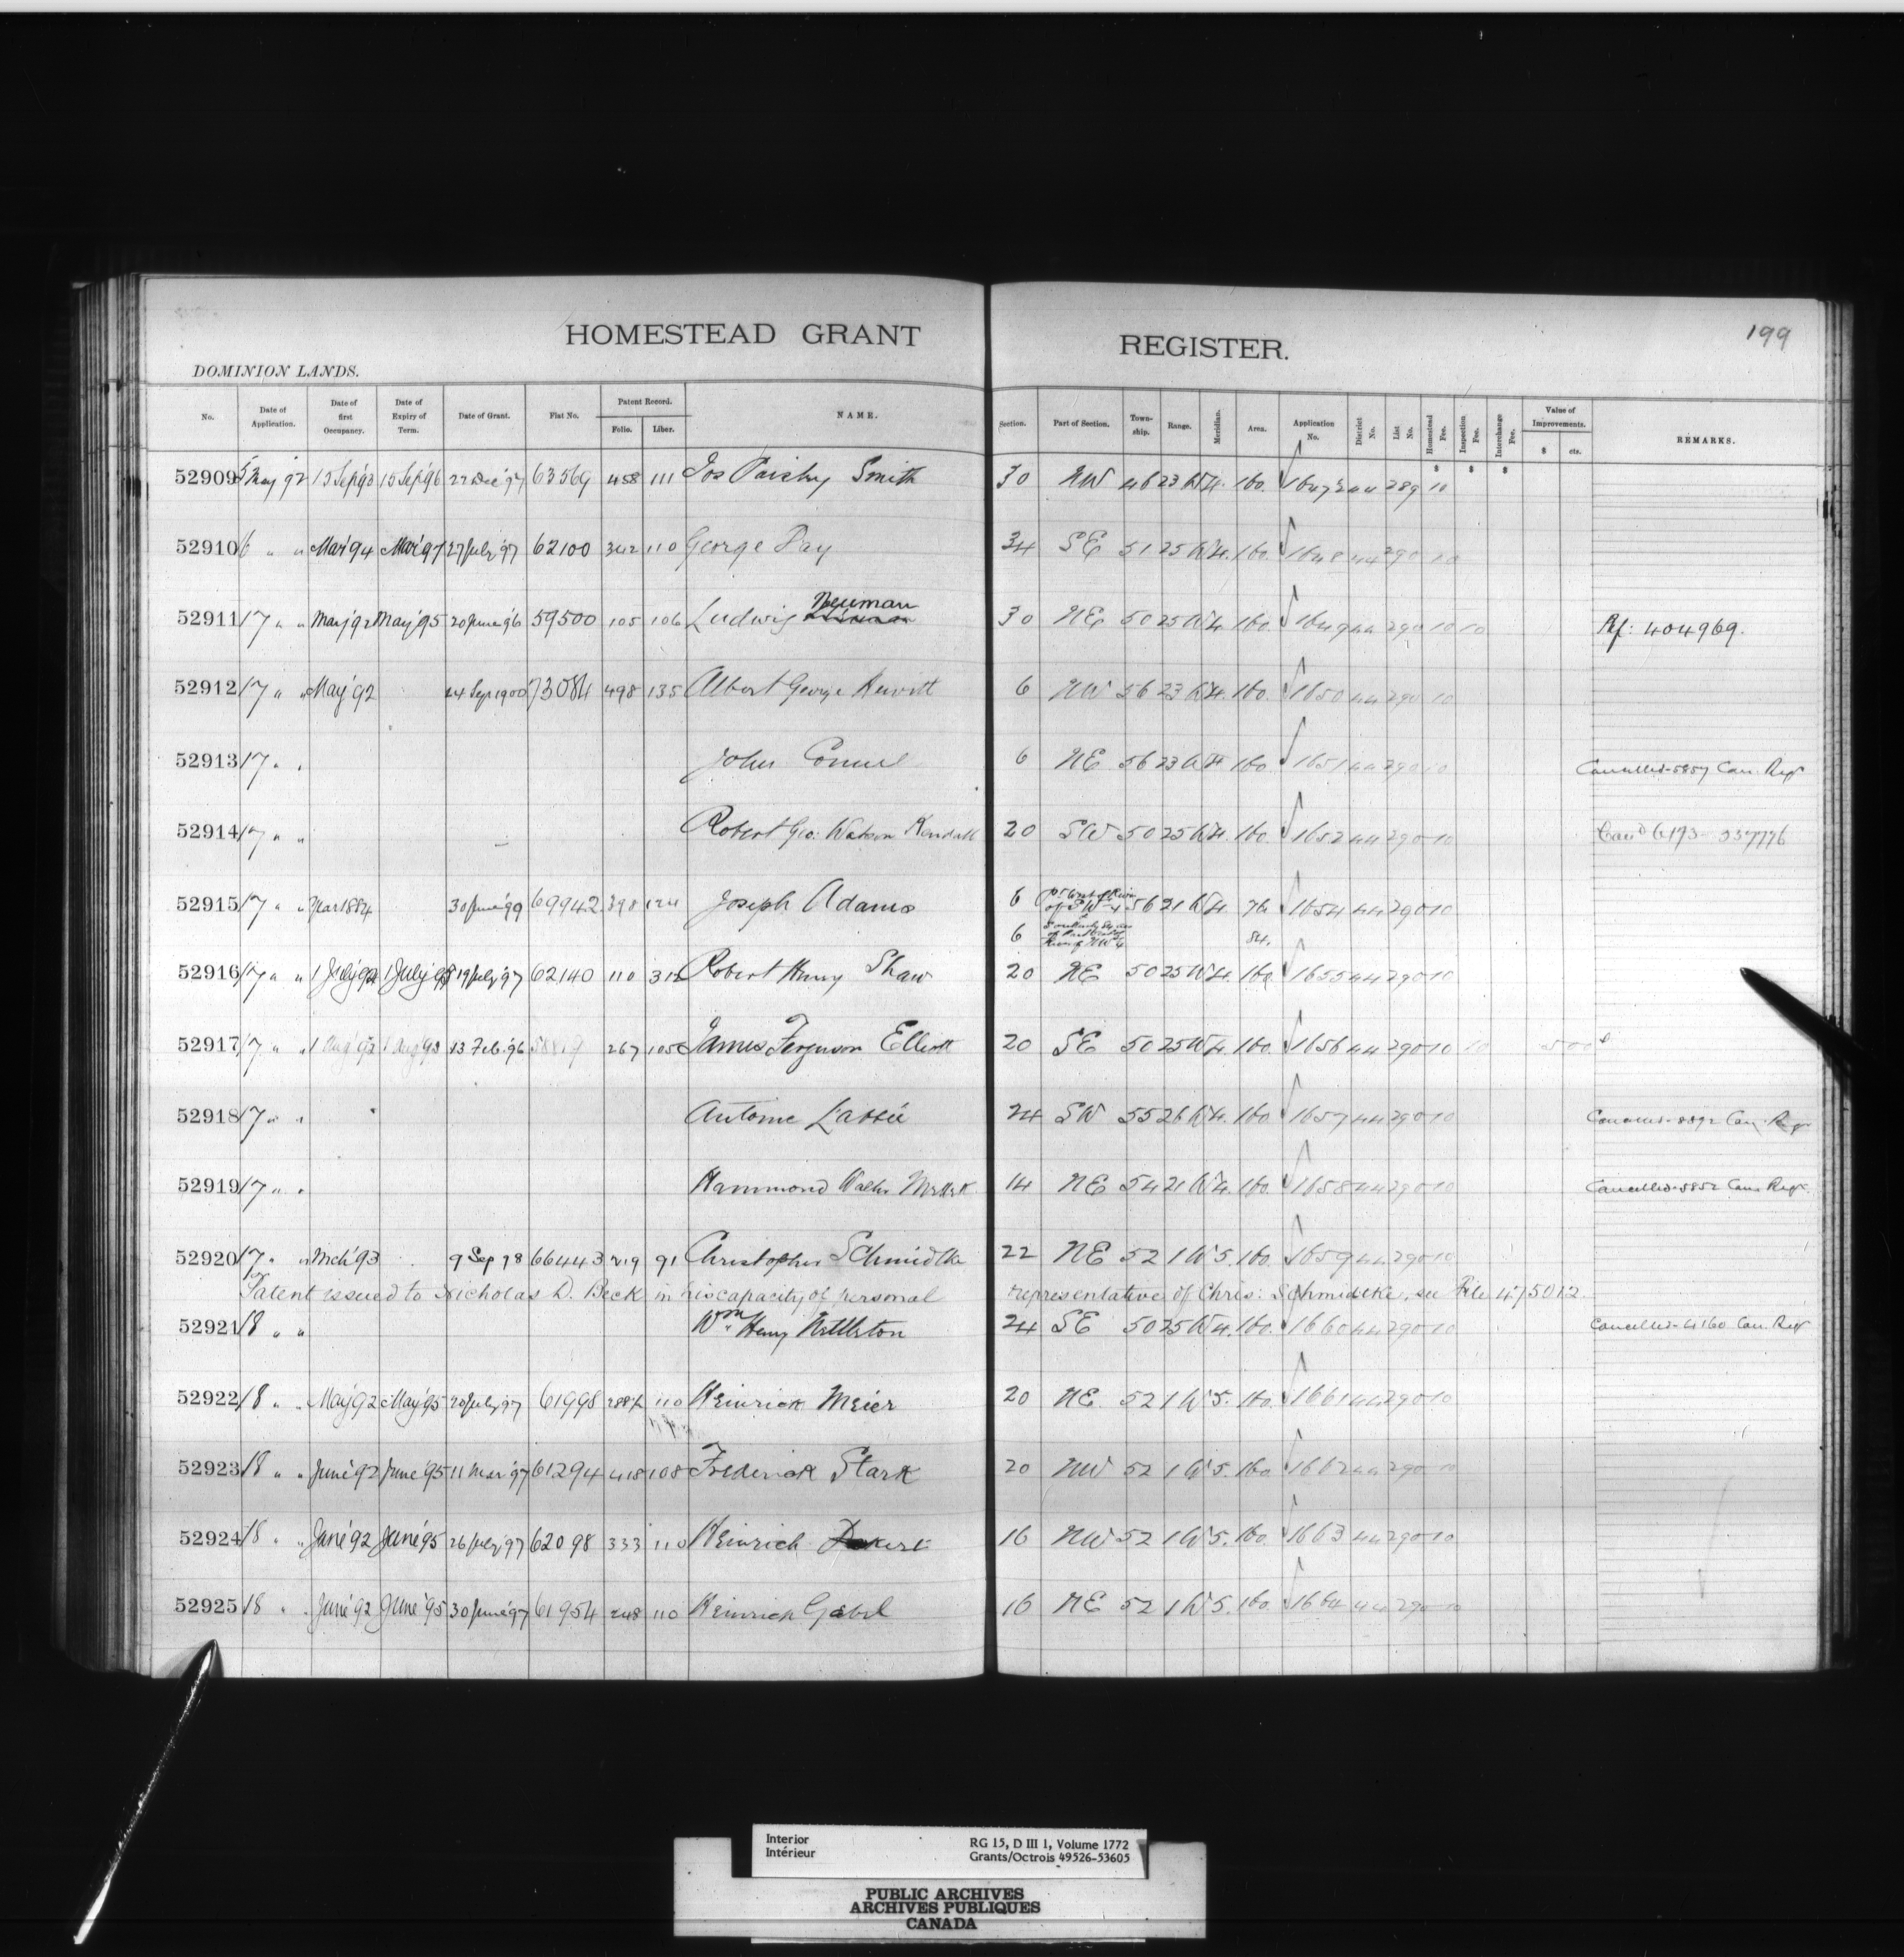 199
HOMESTEAD GRANT REGISTER.
DOMINION LANDS.
No. Date of Application. Date of first Occupancy. Date of Expiry of Term. Date of Grant. Fiat No. Patent Record. Folio. Liber. NAME. Section. Part of Section. Town-ship. Range. Meridian. Area. Application No. District No. List No. Homestead Fee. Inspection Fee. Interchange Fee. Value of Improvements. $ cts. REMARKS.
$ $ $
52909 5 May '92 15 Sep '93 15 Sep '96 22 Dec '97 63569 458 111 Jos Smith 30 NW 46 23 W 4. 160. 1647 44 289 10
52910 6 " " Mar '94 Mar '97 27 July '97 62100 342 110 George Day 34 SE 51 25 W 4. 160. 1648 44 290 10
52911 17 " " May '92 May '95 20 June '96 59500 105 106 Ludwig Neuman 30 NE 50 25 W 4. 160. 1649 44 290 10 10 Rf: 404969.
52912 17 " " May '92 14 Sep 1900 73084 498 135 Albert George Hewitt 6 NW 56 23 W 4. 160. 1650 44 290 10
52913 17 " " John 6 NE 56 23 W 4. 160. 1651 44 290 10 Cancelled-5857 Can. Regr
52914 17 " " Robert Geo: Watson Kendall 20 SW 50 25 W 4. 160. 1652 44 290 10 Cand 6193- 337776
52915 17 " " Mar 1884 30 June '99 69942 398 124 Joseph Adams 6 Pt West of River of SW 4 56 21 W 4. 76 1654 44 290 10
6 84.
52916 17 " " 1 July 1 July 19 July '97 62140 110 312 Robert Henry Shaw 20 NE 50 25 W 4. 160. 1655 44 290 10
52917 17 " " 1 Aug 1 Aug 13 Feb. '96 58819 267 105 James Ferguson Elliott 20 SE 50 25 W 4. 160. 1656 44 290 10 10 500
52918 17 " " Antoine 24 SW 55 26 W 4. 160. 1657 44 290 10 Cancelled-5892 Can. Regr
52919 17 " " Hammond Walter 14 NE 54 21 W 4. 160. 1658 44 290 10 Cancelled-5852 Can. Regr.
52920 17 " " Mch '93 9 Sep 98 66443 219 91 Christopher Schmidtke 22 NE 52 1 W 5. 160. 1659 44 290 10
Patent issued to Nicholas D. Beck in his capacity of personal representative of Chris: Schmidtke, see File 475012.
52921 18 " " Wm Henry Nettleton 24 SE 50 25 W 4. 160. 1660 44 290 10 Cancelled-4160 Can. Regr
52922 18 " " May '92 May '95 20 July '97 61998 288½ 110 Heinrick Meier 20 NE 52 1 W 5. 160. 1661 44 290 10
52923 18 " " June '92 June '95 11 Mar '97 61294 418 108 Frederick Stark 20 NW 52 1 W 5. 160 1662 44 290 10
52924 18 " " June '92 June '95 26 July '97 62098 333 110 Heinrich 16 NW 52 1 W 5. 160. 1663 44 290 10
52925 18 " " June '92 June '95 30 June '97 61954 248 110 Heinrich Gabel 16 NE 52 1 W 5. 160. 1664 44 290 10
Interior RG 15, D III 1, Volume 1772
Intérieur Grants/Octrois 49526-53605
PUBLIC ARCHIVES
ARCHIVES PUBLIQUES
CANADA